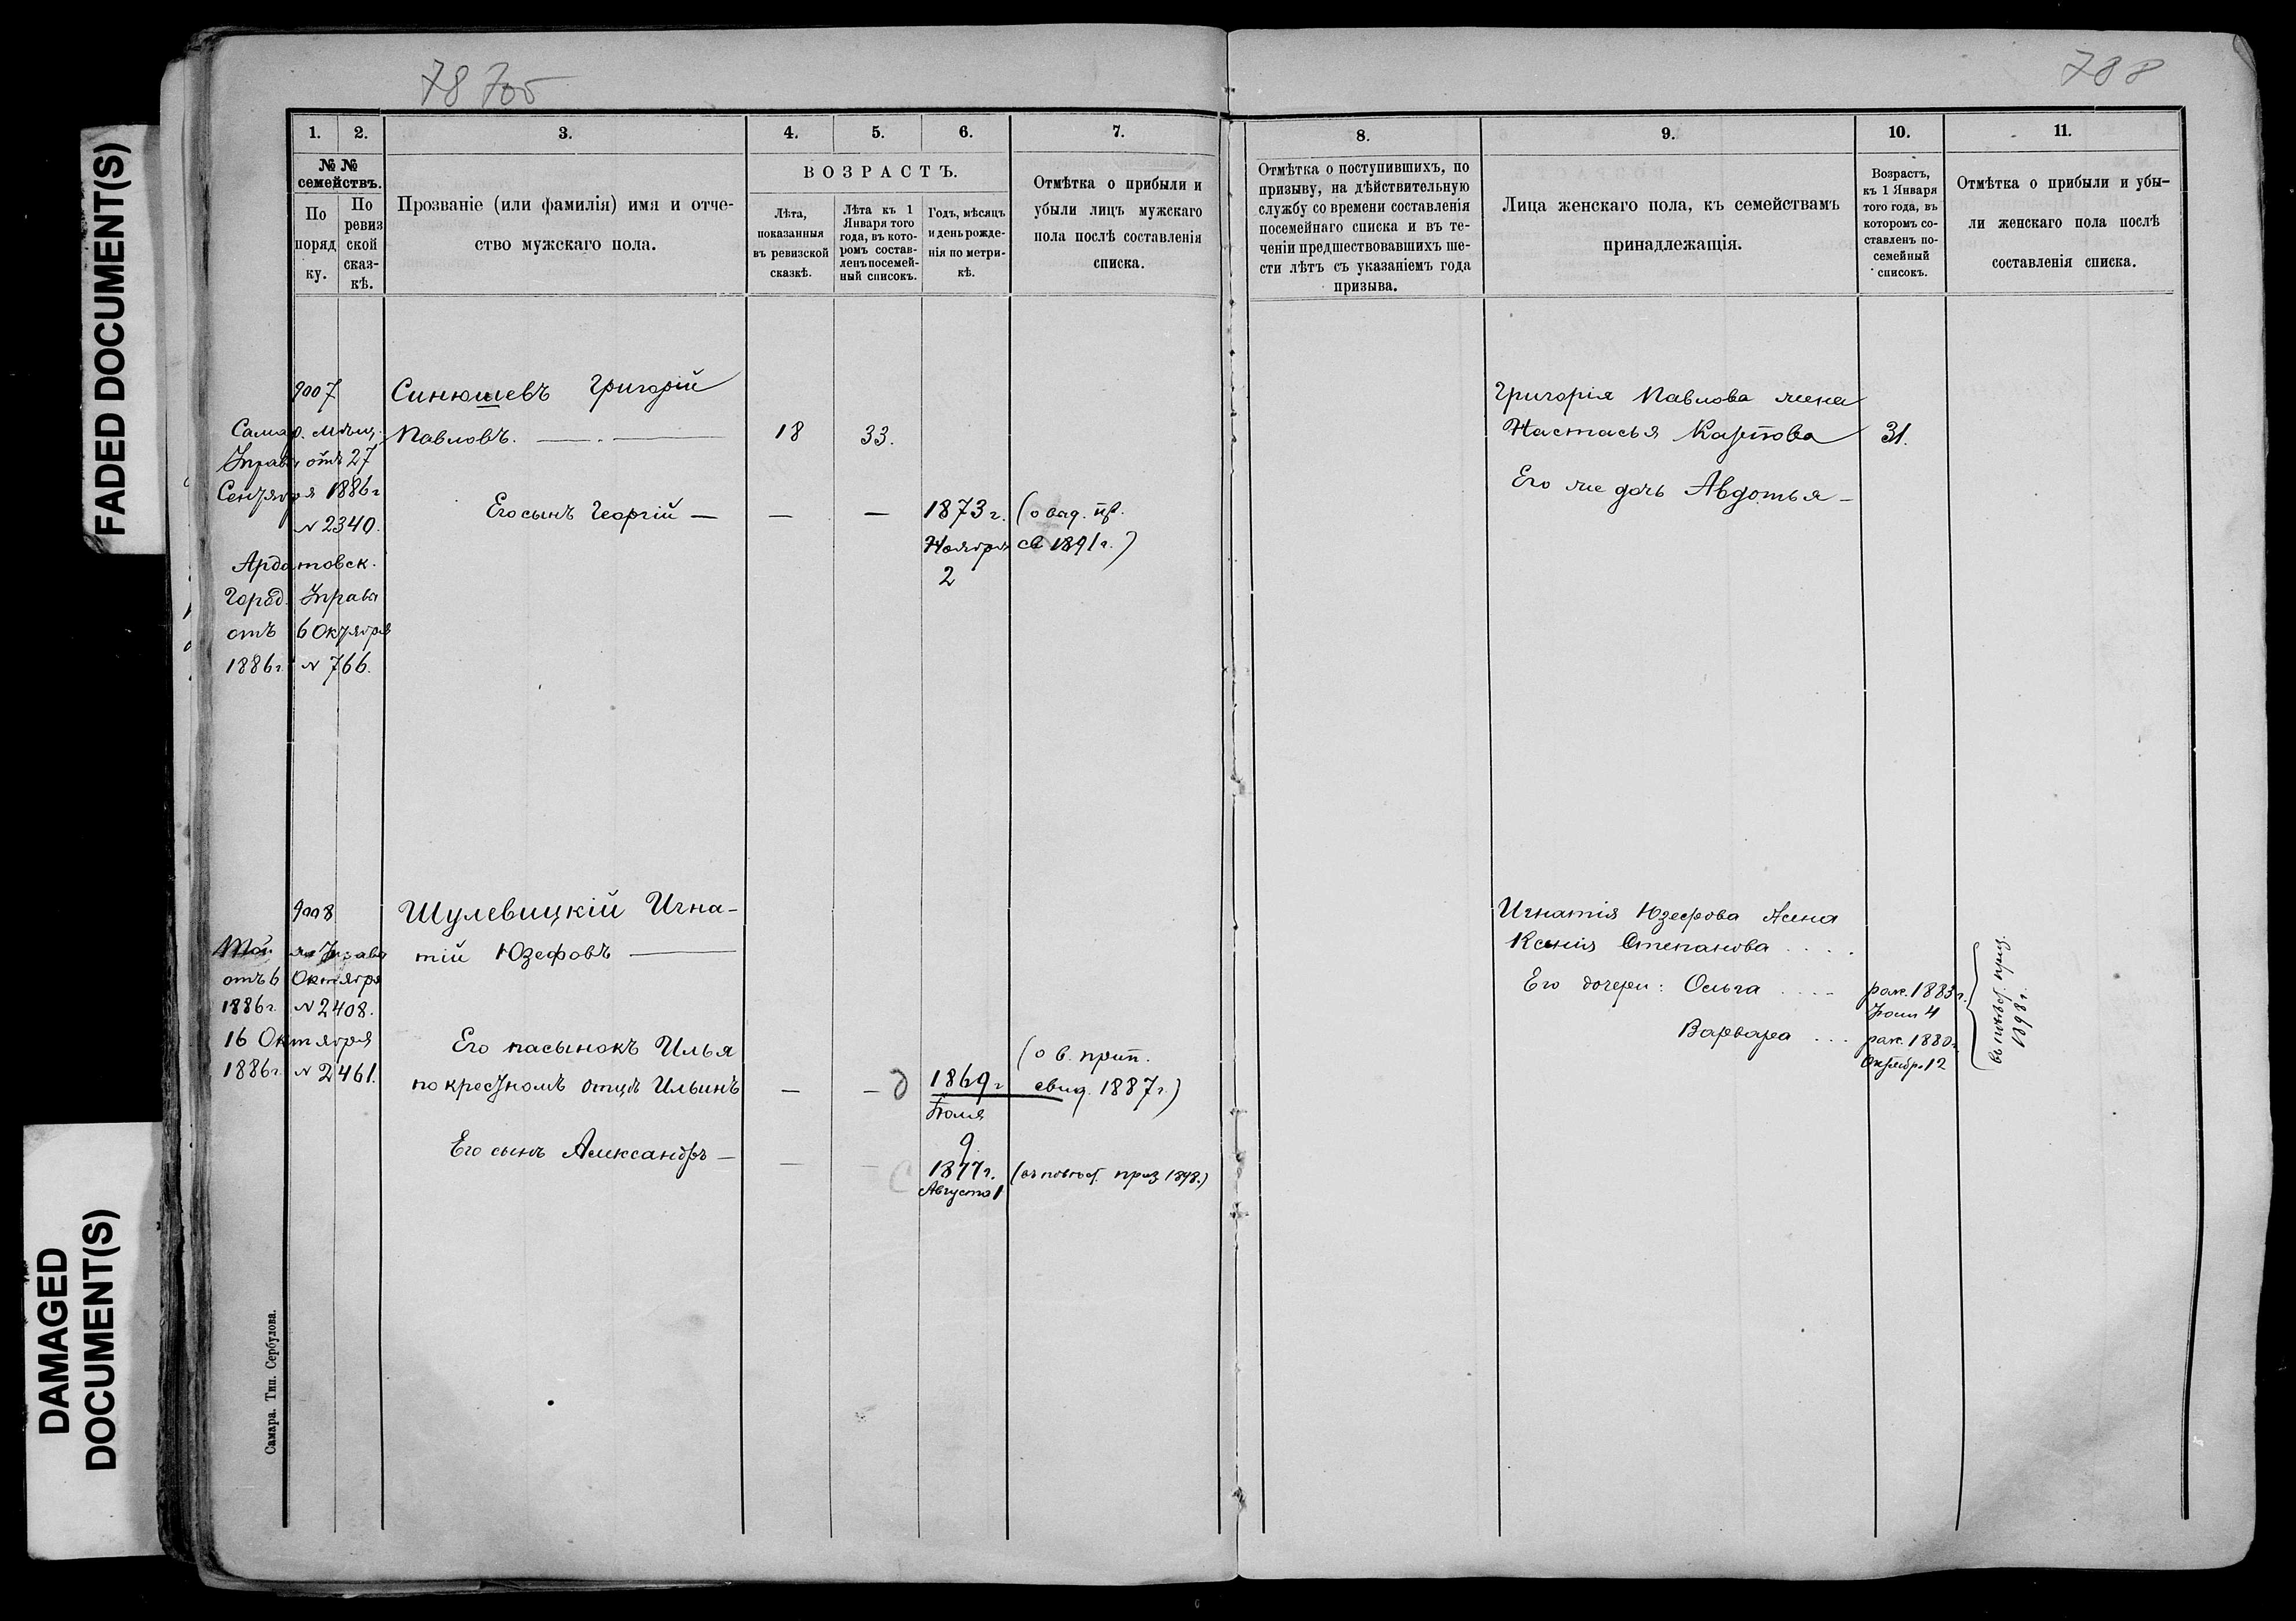 FADED DOCUMENT(S)
DAMAGED
DOCUMENT(S)
788
1.
2.
3.
4.
5.
6.
7.
№ №
семействъ.
По
поряд
ку.
По
ревиз
ской
сказ-
кѣ.
Прозваніе (или фамилія) имя и отче-
ство мужскаго пола.
ВОЗРАСТЪ.
Лѣта,
показанныя
въ ревизской
сказкѣ.
Лѣта къ 1
Января того
года, въ кото-
ромъ состав-
ленъ посемей-
ный списокъ.
Годъ, мѣсяцъ
и день рожде-
нія по метри-
кѣ.
Отмѣтка о прибыли и
убыли лицъ мужскаго
пола послѣ составленія
списка.
9007
Самар. Мѣщ.
Управы отъ 27
Сентября 1886 г
№ 2340.
Ардатовск.
Город. Управы
отъ 6 Октября
1886 г. № 766.
Синюшевъ Григорій
Павловъ.
18
33.
Его сынъ Георгій —
—
—
1873 г.
Ноября
2
(о вад. пр.
св 1891 г.)
9008
Управы
отъ 6 Октября
1886 г. № 2408.
16 Октября
1886 г. № 2461.
Шулевицкій Игна-
тій Юзефовъ
Его пасынокъ Илья
по крестномъ отцѣ Ильинъ
—
—
1869 г
Іюля
9
(о в. прип.
свид. 1887 г.)
Его сынъ Александръ —
—
—
1877 г.
Августа 1
(въ повѣст. приз 1898.)
Самара. Тип. Сербулова.
8.
9.
10.
11.
Отмѣтка о поступившихъ, по
призыву, на дѣйствительную
службу со времени составленія
посемейнаго списка и въ те-
ченіи предшествовавшихъ ше-
сти лѣтъ съ указаніемъ года
призыва.
Лица женскаго пола, къ семействамъ
принадлежащія.
Возрастъ,
къ 1 Января
того года, въ
которомъ со-
ставленъ по-
семейный
списокъ.
Отмѣтка о прибыли и убы-
ли женскаго пола послѣ
составленія списка.
Григорія Павлова жена
Настасья Карпова
31.
Его же дочь Авдотья —
Игнатія Юзефова жена
Ксенія Степанова . . . .
Его дочери: Ольга . . . .
рож. 1883 г.
Іюля 4
Варвара . . .
рож. 1880 г.
Октябр. 12
въ повѣст. приз.
1898 г.